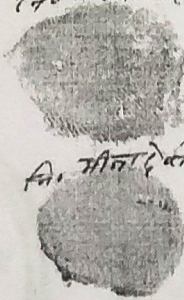 नि. मीना देवी